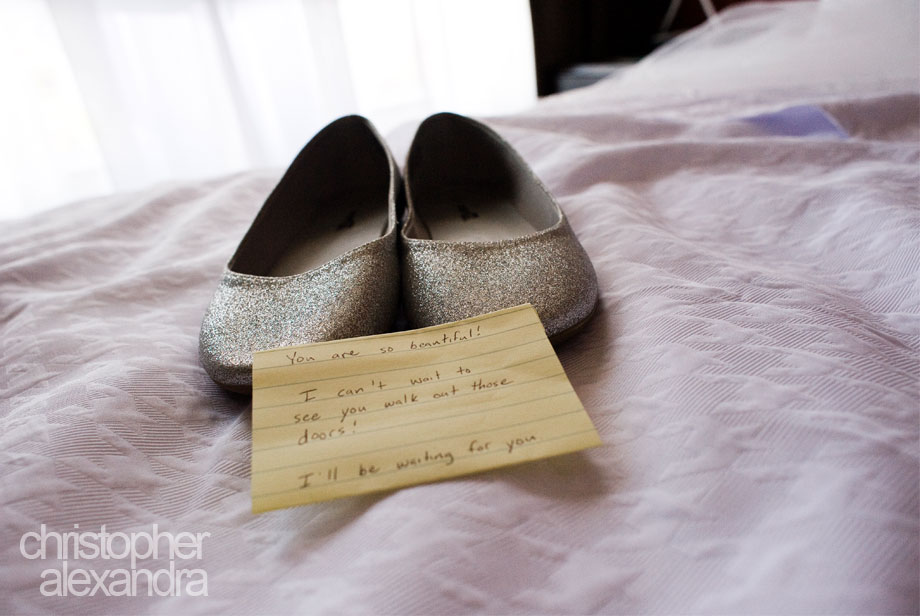 You are so beautiful!
I can't wait to
see you walk out those
doors!
I'll be waiting for you
christopher
alexandra